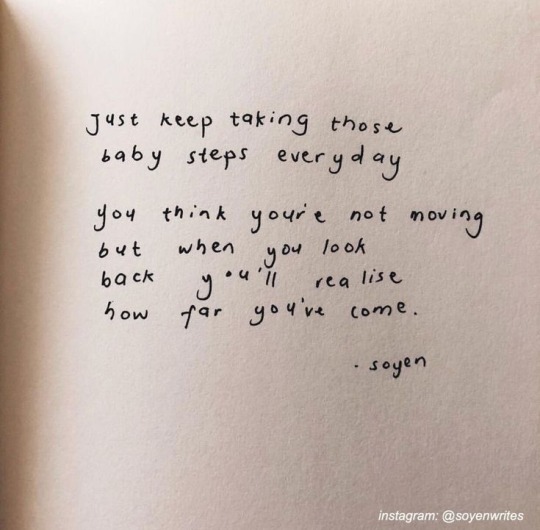 Just keep taking those
baby steps everyday
you think your'e not moving
but when you look
back you'll realise
how far you've come.
- soyen
instagram: @soyenwrites